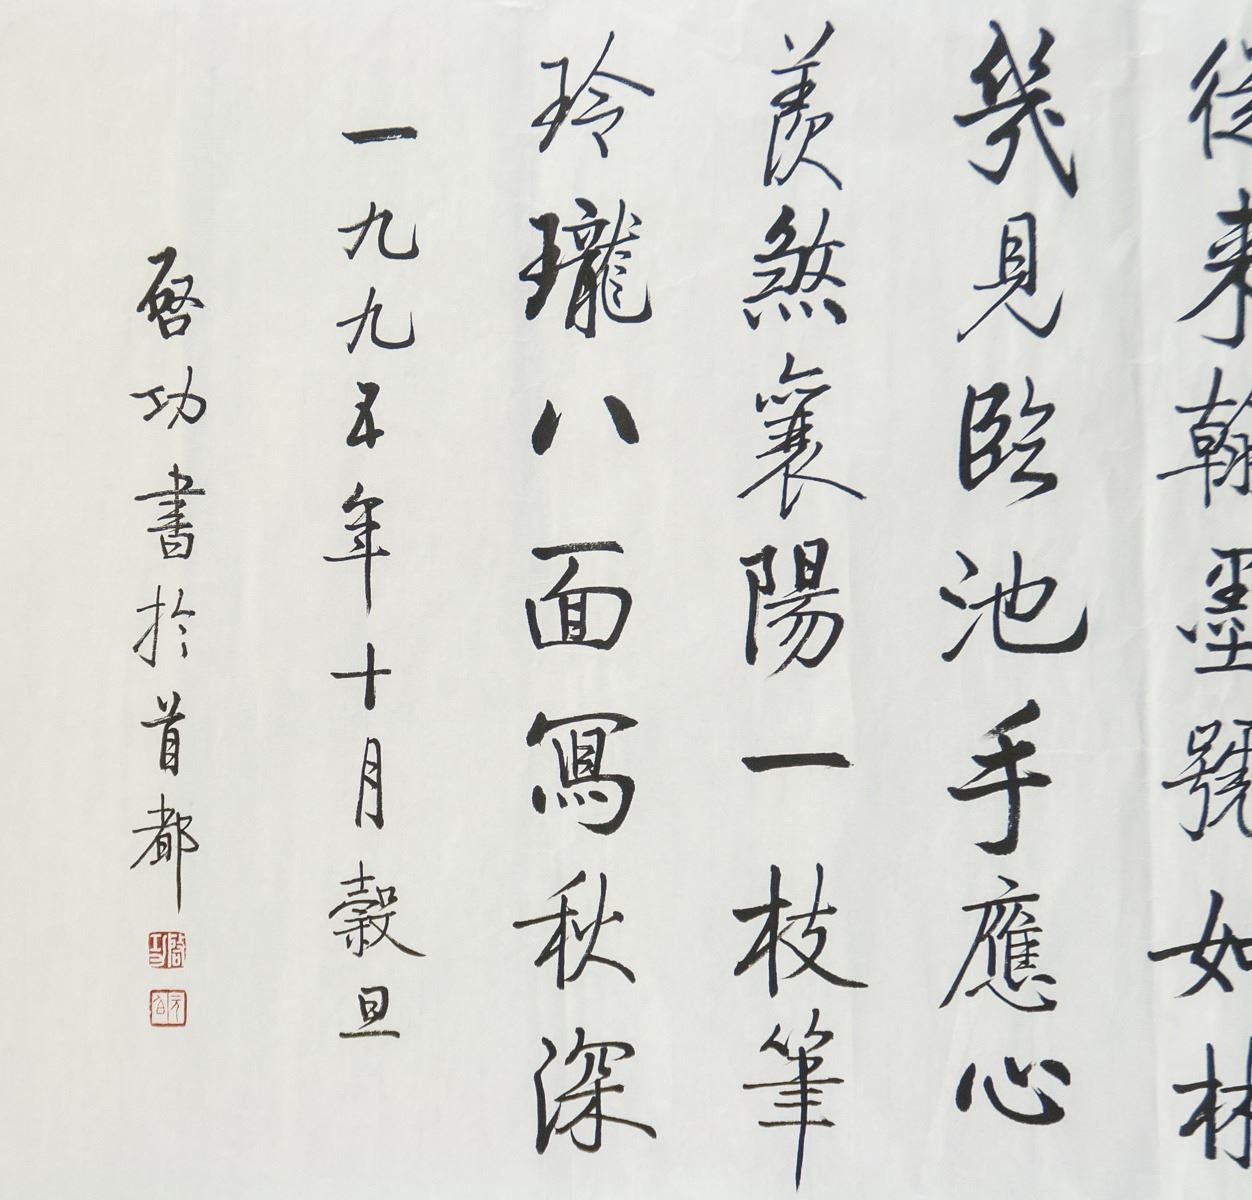 從来翰墨號如林
幾見臨池手應心
羨煞襄陽一枝筆
玲瓏八面寫秋深
一九九五年十月穀旦
啓功書於首都
啓功
元白